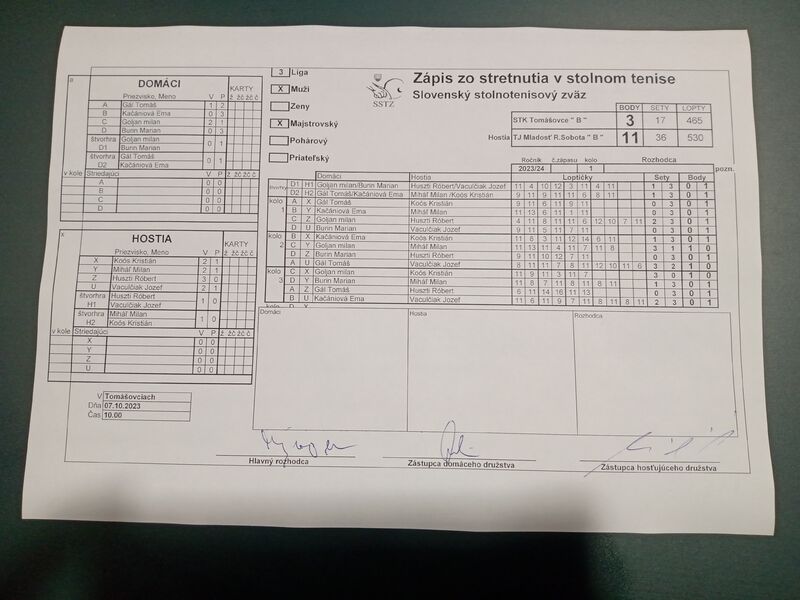 Zápis zo stretnutia v stolnom tenise
Slovenský stolnotenisový zväz
SSTZ
3 Liga
X Muži
Ženy
X Majstrovský
Pohárový
Priateľský
BODY SETY LOPTY
STK Tomášovce " B " 3 17 465
Hostia TJ Mladosť R.Sobota " B " 11 36 530
Ročník č.zápasu kolo Rozhodca
2023/24 1 pozn.
DOMÁCI
Priezvisko, Meno V P KARTY
ž žč žč č
A Gál Tomáš 1 2
B Kačániová Ema 0 3
C Goljan milan 2 1
D Burin Marian 0 3
štvorhra Goljan milan 0 1
D1 Burin Marian
štvorhra Gál Tomáš 0 1
D2 Kačániová Ema
v kole Striedajúci V P ž žč žč č
A 0 0
B 0 0
C 0 0
D 0 0
X
HOSTIA
Priezvisko, Meno V P KARTY
ž žč žč č
X Koós Kristián 2 1
Y Miháľ Milan 2 1
Z Huszti Róbert 3 0
U Vaculčiak Jozef 2 1
štvorhra Huszti Róbert 1 0
H1 Vaculčiak Jozef
štvorhra Miháľ Milan 1 0
H2 Koós Kristián
v kole Striedajúci V P ž žč žč č
X 0 0
Y 0 0
Z 0 0
U 0 0
Domáci Hostia Loptičky Sety Body
štvorhry D1 H1 Goljan milan/Burin Marian Huszti Róbert/Vaculčiak Jozef 11 4 10 12 3 11 4 11 1 3 0 1
D2 H2 Gál Tomáš/Kačániová Ema Miháľ Milan /Koós Kristián 1 3 0 1
kolo 1 A X Gál Tomáš Koós Kristián 9 11 6 11 9 11 0 3 0 1
B Y Kačániová Ema Miháľ Milan 11 13 6 11 1 11 0 3 0 1
C Z Goljan milan Huszti Róbert 2 3 0 1
D U Burin Marian Vaculčiak Jozef 9 11 5 11 7 11 0 3 0 1
kolo 2 B X Kačániová Ema Koós Kristián 11 8 3 11 12 14 6 11 1 3 0 1
C Y Goljan milan Miháľ Milan 3 1 1 0
D Z Burin Marian Huszti Róbert 9 11 10 12 7 11 0 3 0 1
A U Gál Tomáš Vaculčiak Jozef 8 11 11 7 8 11 12 10 11 6 3 2 1 0
kolo 3 C X Goljan milan Koós Kristián 11 9 11 3 11 7 3 0 1 0
D Y Burin Marian Miháľ Milan 11 8 7 11 8 11 8 11 1 3 0 1
A Z Gál Tomáš Huszti Róbert 6 11 14 16 11 13 0 3 0 1
B U Kačániová Ema Vaculčiak Jozef 11 6 11 9 7 11 8 11 8 11 2 3 0 1
Domáci Hostia Rozhodca
V Tomášovciach
Dňa 07.10.2023
Čas 10.00
Hlavný rozhodca Zástupca domáceho družstva Zástupca hosťujúceho družstva